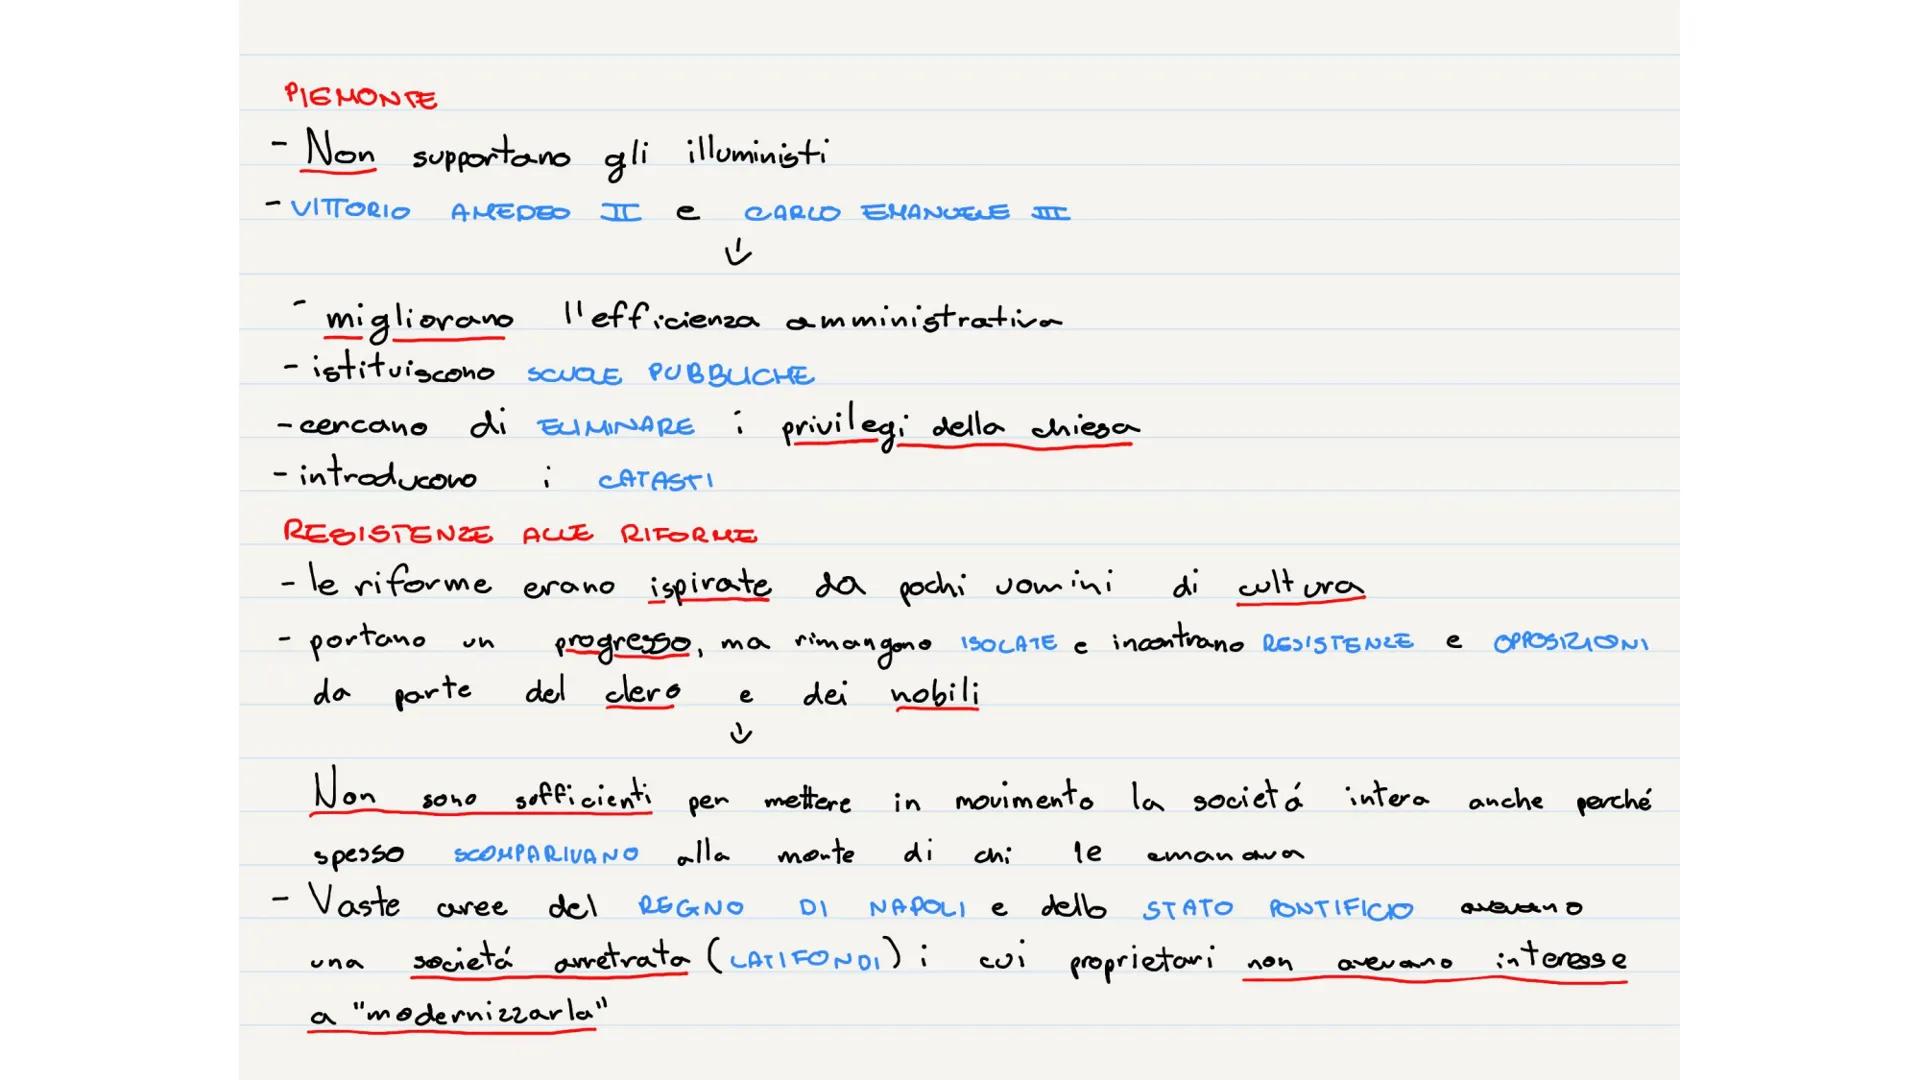 PIEMONTE
- Non supportano gli illuministi
- VITTORIO AMEDEO II e CARLO EMANUELE III
↓
- migliorano l'efficienza amministrativa
- istituiscono SCUOLE PUBBLICHE
- cercano di ELIMINARE i privilegi della chiesa
- introducono i CATASTI
RESISTENZE ALLE RIFORME
- le riforme erano ispirate da pochi uomini di cultura
- portano un progresso, ma rimangono ISOLATE e incontrano RESISTENZE e OPPOSIZIONI
da parte del clero e dei nobili
↓
Non sono sofficienti per mettere in movimento la societá intera anche perché
spesso SCOMPARIVANO alla morte di chi le emanava
- Vaste aree del REGNO DI NAPOLI e dello STATO PONTIFICIO avevano
una societá arretrata (LATIFONDI) i cui proprietari non avevano interesse
a "modernizzarla"